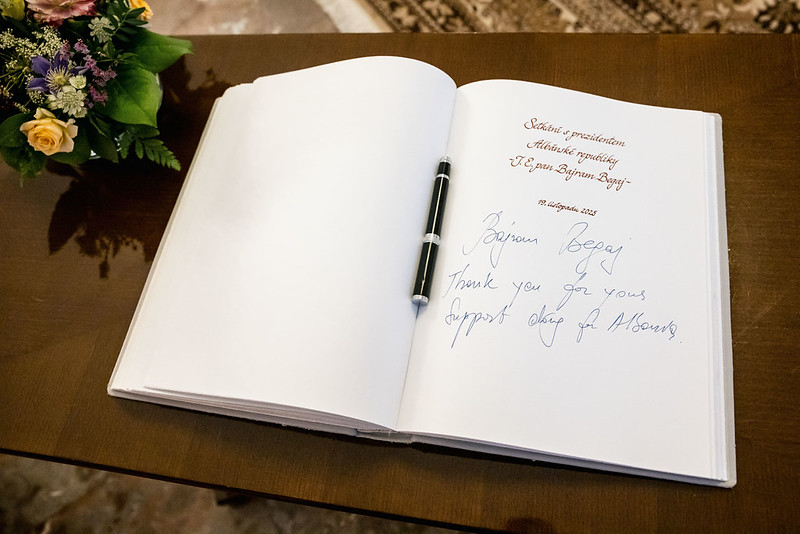 Setkání s prezidentem
Albánské republiky
-J. E. pan Bajram Begaj-
19. listopadu 2025
Bajram Begaj
Thank you for your
support for Albania.